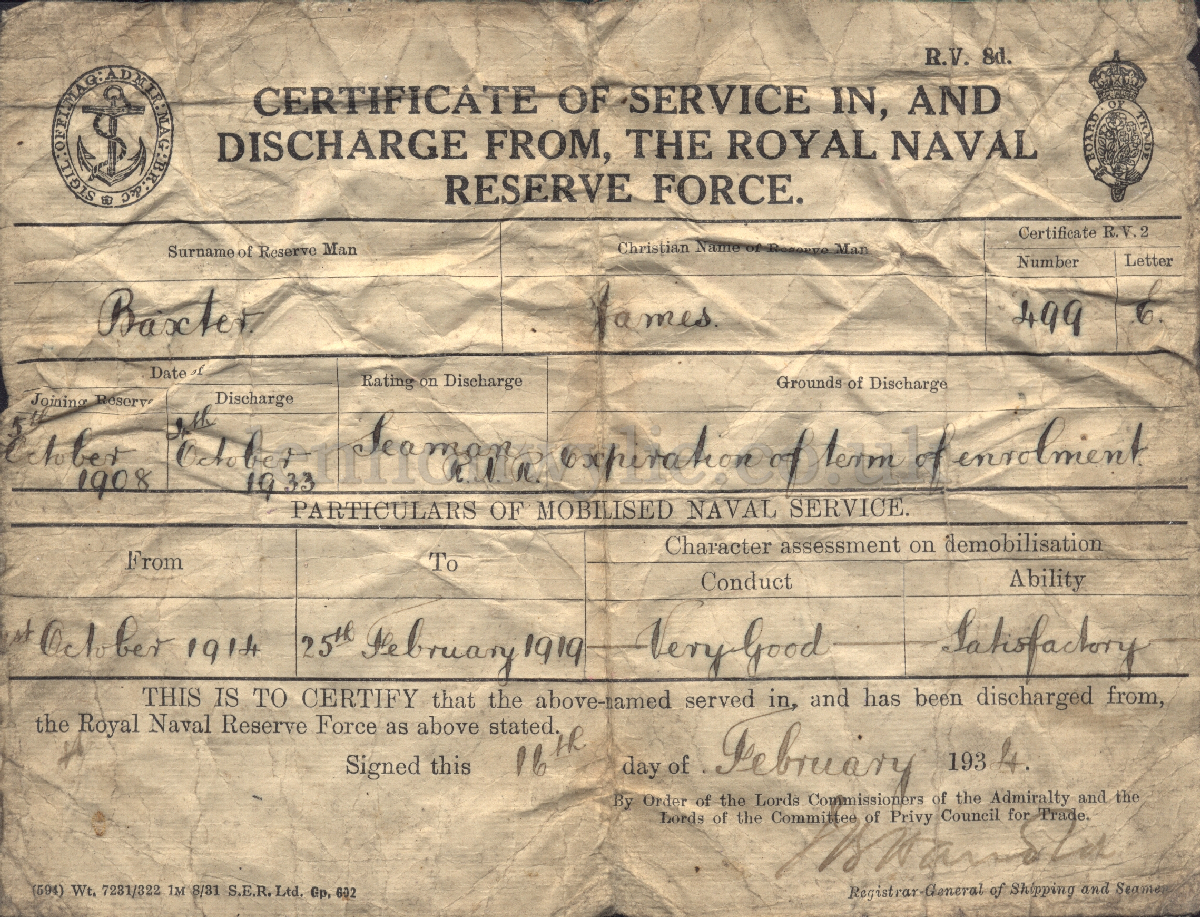 R.V. 8d.
SIGIL: OFFI: MAG: ADMIR: MAG: BR: &c
CERTIFICATE OF SERVICE IN, AND
BOARD OF TRADE
DISCHARGE FROM, THE ROYAL NAVAL
RESERVE FORCE.
Surname of Reserve Man Christian Name of Reserve Man Certificate R.V. 2
Number Letter
Baxter. James. 499 C.
Date of Rating on Discharge Grounds of Discharge
Joining Reserve Discharge
5th October 1908 October 1933 Seaman R.N.R. expiration of term of enrolment
PARTICULARS OF MOBILISED NAVAL SERVICE.
From To Character assessment on demobilisation
Conduct Ability
1st October 1914 25th February 1919 Very Good Satisfactory
THIS IS TO CERTIFY that the above-named served in, and has been discharged from,
the Royal Naval Reserve Force as above stated.
Signed this 16th day of February 1934.
By Order of the Lords Commissioners of the Admiralty and the
Lords of the Committee of Privy Council for Trade.
(594) Wt. 7231/322 1M 8/31 S.E.R. Ltd. Gp. 692
Registrar-General of Shipping and Seamen